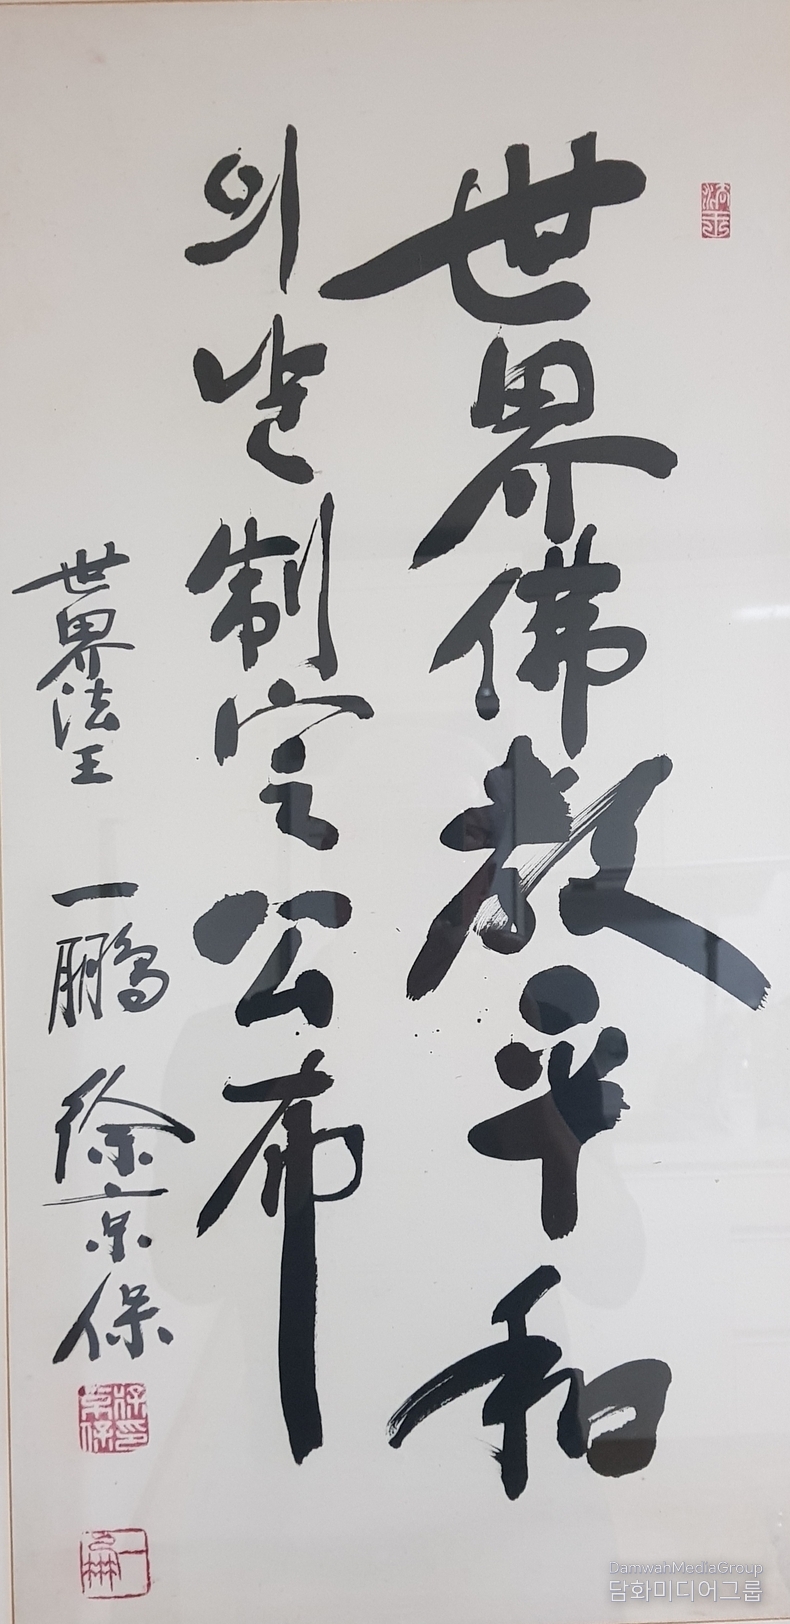 世界佛敎平和
의 날 制定公布
世界法王 一鵬 徐京保
DamwahMediaGroup
담화미디어그룹